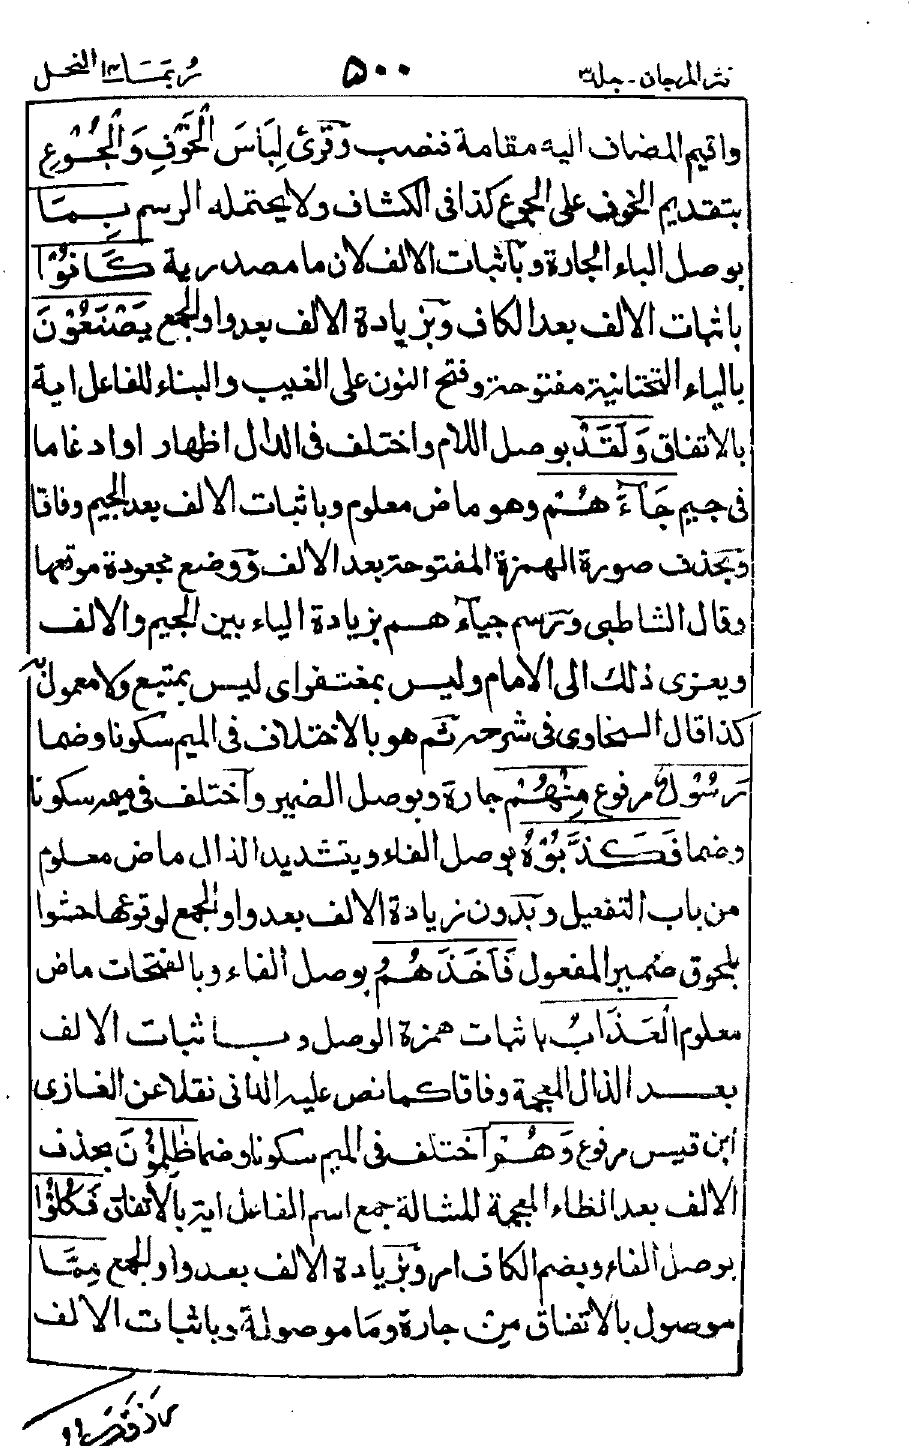 نثر المرجان - جلد ٣ ٥٠٠ ربما ١٤ النحل
واقيم المضاف اليه مقامة فنصب وَقُرئ لِبَاسَ الْخَوْفِ وَالْجُوْعِ
بتقديم الخوف على الجوع كذا فى الكشاف ولا يحتمله الرسم بِمَا
بوصل الباء الجارة وباثبات الالف لان ما مصدرية كَانُوْا
باثبات الالف بعد الكاف وبزيادة الالف بعد واو الجمع يَصْنَعُوْنَ
بالياء التحتانية مفتوحة وفتح النون على الغيب والبناء للفاعل اية
بالاتفاق وَلَقَدْ بوصل اللام واختلف فى الدال اظهار اوادغاما
فى جيم جَآءَ هُمْ وهو ماض معلوم وباثبات الالف بعد الجيم وفاقا
وبحذف صورة الهمزة المفتوحة بعد الالف ووضع مجعودة موقعها
وقال الشاطبى وترسم جيآء هم بزيادة الياء بين الجيم والالف
ويعزى ذلك الى الامام وليس بمغتفر اى ليس بمتبع ولا معمول به
كذا قال السخاوى فى شرحه ثم هو بالاختلاف فى الميم سكونا وضما
رَسُوْلٌ مرفوع مِنْهُمْ جارة وبوصل الضمير واختلف فى ميمه سكونا
وضما فَكَذَّبُوْهُ بوصل الفاء وبتشديد الذال ماض معلوم
من باب التفعيل وبدون زيادة الالف بعد واو الجمع لوقوعها حشوا
بلحوق ضمير المفعول فَاَخَذَهُمُ بوصل الفاء وبالفتحات ماض
معلوم الْعَذَابُ باثبات همزة الوصل وباثبات الالف
بعد الذال المعجمة وفاقا كما نص عليه الدانى نقلا عن الغازى
ابن قيس مرفوع وَهُمْ اختلف فى الميم سكونا وضما ظٰلِمُوْنَ بحذف
الالف بعد الظاء المعجمة المشالة جمع اسم الفاعل اية بالاتفاق فَكُلُوْا
بوصل الفاء وبضم الكاف امر وبزيادة الالف بعد واو الجمع مِمَّا
موصول بالاتفاق من جارة وما موصولة وباثبات الالف
رزقكم